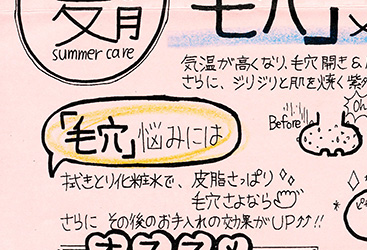 毛穴」
summer care
気温が高くなり、毛穴開き&
さらに、ジリジリと肌を焼く紫外
「毛穴」悩みには
Before
Oh
拭きとり化粧水で、皮脂さっぱり
毛穴さよなら
さらに その後のお手入れの効果がUP⤴⤴!!
オススメ